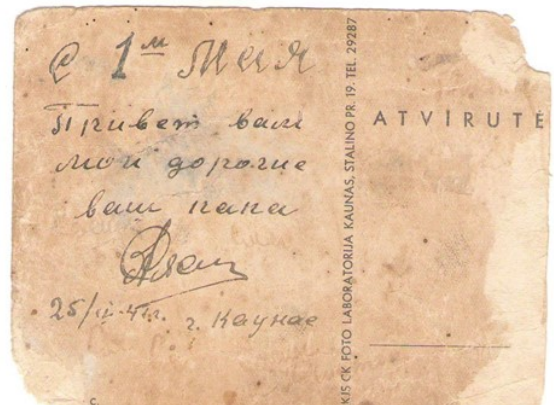 С 1м Мая
Привет вам
мои дорогие
ваш папа
25/IV-41г.
г. Каунас
ATVIRUTĖ
KJS CK FOTO LABORATORIJA KAUNAS, STALINO PR. 19. TEL. 29287